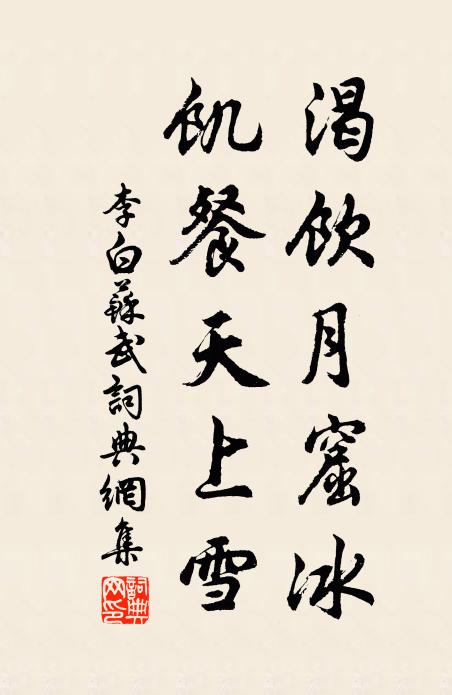 渴飲月窟冰
飢餐天上雪
李白蘇武詞典網集
詞典網印